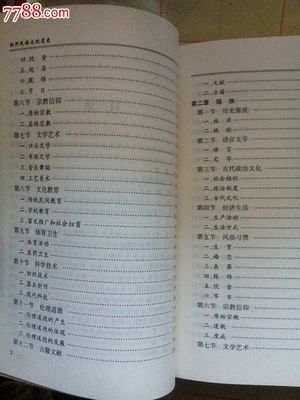 7788.com
四、饮食
五、起居
六、服饰
七、节日
第六节 宗教信仰
一、原始宗教
二、其他宗教
第七节 文学艺术
一、口头文学
二、书面文学
三、音乐舞蹈
四、工艺美术
第八节 文化教育
一、传统民间教育
二、学校教育
第九节 体育卫生
一、体育活动
二、医药卫生
第十节 科学技术
一、纺织技术
二、器具制作
三、现代科技
第十一节 伦理道德
一、伦理道德的产生
二、伦理道德的体现
三、伦理道德的发展
第十二节 古籍文献
2
一、文献
二、古籍
第二章
第一节 历史源流
一、族源
二、族称
第二节 语言文字
一、语言
二、文字
第三节 古代政治文化
一、社会组织
二、政治制度
三、古代文化
第四节 经济生活
一、生产活动
二、生活方式
第五节 风俗习惯
一、生育
二、婚恋
三、丧葬
四、服饰
五、饮食
六、节日
第六节 宗教信仰
一、原始宗教
二、道教
三、度戒
第七节 文学艺术